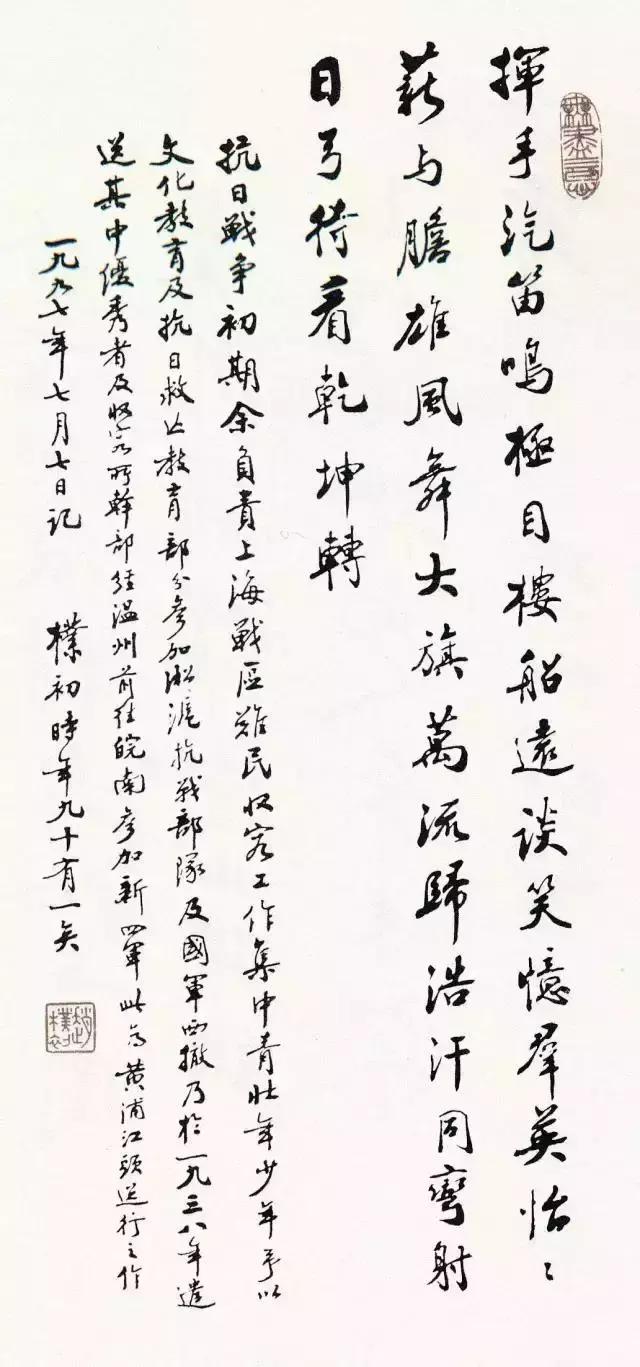 無盡意
揮手汽笛鳴極目樓船遠談笑憶羣英怡〻
薪与膽雄風舞大旗萬流歸浩汗同彎射
日弓待看乾坤轉
抗日戦争初期余負責上海戦区難民收容工作集中青壯年少年予以
文化教育及抗日救亡教育部分參加淞滬抗战部隊及國軍西撤乃於一九三八年遣
送其中優秀者及收容所幹部經温州前往皖南參加新四軍此為黃浦江頭送行之作
一九九七年七月七日記 樸初時年九十有一矣
趙樸初